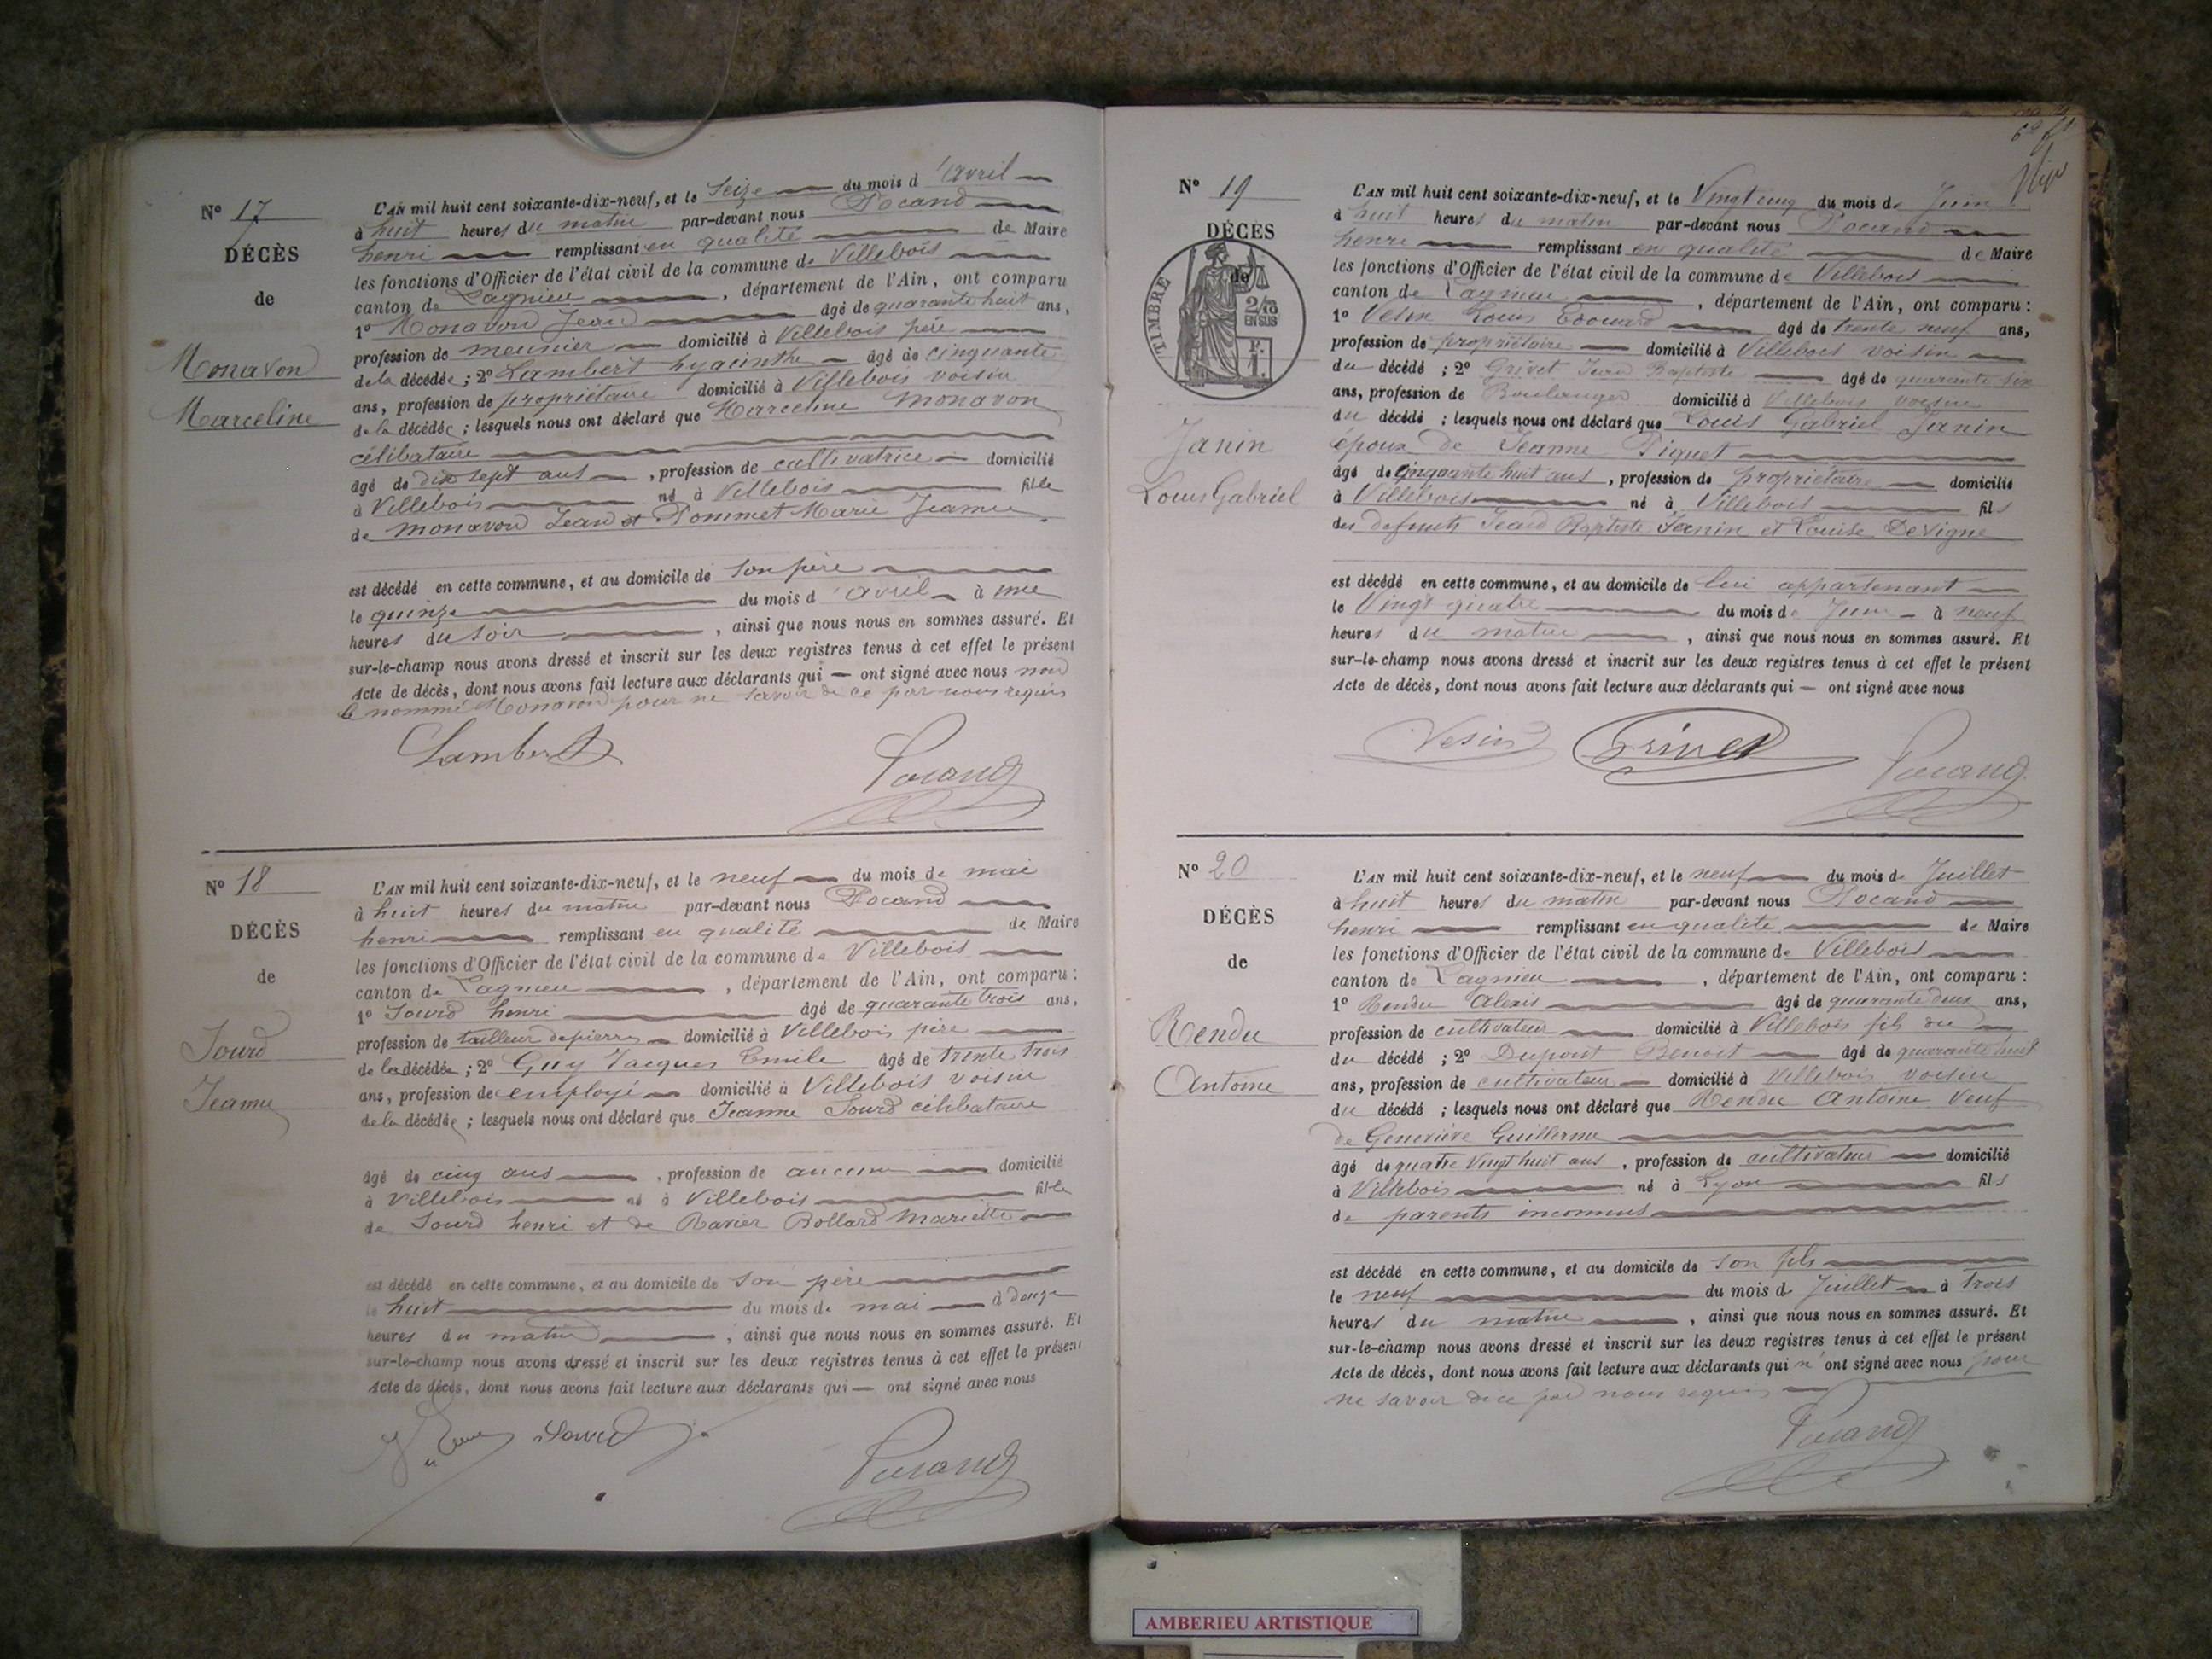 N° 17
DÉCÈS
de
Monavon
Marceline
L'AN mil huit cent soixante-dix-neuf, et le Seize du mois d'avril
à huit heures du matin par-devant nous Pocand
henri remplissant en qualité de Maire
les fonctions d'Officier de l'état civil de la commune de Villebois
canton de Lagnieu, département de l'Ain, ont comparu
1° Monavon Jean âgé de quarante huit ans,
profession de meunier domicilié à Villebois père
de la décédée ; 2° Lambert hyacinthe âgé de cinquante
ans, profession de propriétaire domicilié à Villebois voisin
de la décédée ; lesquels nous ont déclaré que Marceline Monavon
célibataire
âgé de dix sept ans, profession de cultivatrice domicilié
à Villebois né à Villebois fille
de Monavon Jean et Pommet Marie Jeanne
est décédé en cette commune, et au domicile de son père
le quinze du mois d'avril à une
heures du soir, ainsi que nous nous en sommes assuré. Et
sur-le-champ nous avons dressé et inscrit sur les deux registres tenus à cet effet le présent
Acte de décès, dont nous avons fait lecture aux déclarants qui — ont signé avec nous non
le nommé Monavon pour ne savoir de ce par nous requis
Lambert
Pocand
N° 18
DÉCÈS
de
Jourd
Jeanne
L'AN mil huit cent soixante-dix-neuf, et le neuf du mois de mai
à huit heures du matin par-devant nous Pocand
henri remplissant en qualité de Maire
les fonctions d'Officier de l'état civil de la commune de Villebois
canton de Lagnieu, département de l'Ain, ont comparu :
1° Jourd henri âgé de quarante trois ans,
profession de tailleur de pierres domicilié à Villebois père
de la décédée ; 2° Guy Jacques Emile âgé de trente trois
ans, profession de employé domicilié à Villebois voisin
de la décédée ; lesquels nous ont déclaré que Jeanne Jourd célibataire
âgé de cinq ans, profession de aucune domicilié
à Villebois né à Villebois fille
de Jourd henri et de Ravier Bollard Mariette
est décédé en cette commune, et au domicile de son père
le huit du mois de mai à douze
heures du matin, ainsi que nous nous en sommes assuré. Et
sur-le-champ nous avons dressé et inscrit sur les deux registres tenus à cet effet le présent
Acte de décès, dont nous avons fait lecture aux déclarants qui — ont signé avec nous
Pocand
N° 19
DÉCÈS
de
TIMBRE
2/10
EN SUS
Janin
Louis Gabriel
L'AN mil huit cent soixante-dix-neuf, et le Vingt cinq du mois de Juin
à huit heures du matin par-devant nous Pocand
henri remplissant en qualité de Maire
les fonctions d'Officier de l'état civil de la commune de Villebois
canton de Lagnieu, département de l'Ain, ont comparu :
1° Vesin Louis Edouard âgé de trente neuf ans,
profession de propriétaire domicilié à Villebois voisin
du décédé ; 2° Grivet Jean Baptiste âgé de quarante six
ans, profession de Boulanger domicilié à Villebois voisin
du décédé ; lesquels nous ont déclaré que Louis Gabriel Janin
époux de Jeanne Piquet
âgé de cinquante huit ans, profession de propriétaire domicilié
à Villebois né à Villebois fils
des defunts Jean Baptiste Janin et Louise Devigne
est décédé en cette commune, et au domicile de lui appartenant
le Vingt quatre du mois de Juin à neuf
heures du matin, ainsi que nous nous en sommes assuré. Et
sur-le-champ nous avons dressé et inscrit sur les deux registres tenus à cet effet le présent
Acte de décès, dont nous avons fait lecture aux déclarants qui — ont signé avec nous
Vesin Grivet
Pocand
N° 20
DÉCÈS
de
Rendu
Antoine
L'AN mil huit cent soixante-dix-neuf, et le neuf du mois de Juillet
à huit heures du matin par-devant nous Pocand
henri remplissant en qualité de Maire
les fonctions d'Officier de l'état civil de la commune de Villebois
canton de Lagnieu, département de l'Ain, ont comparu :
1° Rendu Alexis âgé de quarante deux ans,
profession de cultivateur domicilié à Villebois fils du
du décédé ; 2° Dupont Benoit âgé de quarante huit
ans, profession de cultivateur domicilié à Villebois voisin
du décédé ; lesquels nous ont déclaré que Rendu Antoine Veuf
de Geneviève Guillerme
âgé de quatre Vingt huit ans, profession de cultivateur domicilié
à Villebois né à Lyon fils
de parents inconnus
est décédé en cette commune, et au domicile de son fils
le neuf du mois de Juillet à trois
heures du matin, ainsi que nous nous en sommes assuré. Et
sur-le-champ nous avons dressé et inscrit sur les deux registres tenus à cet effet le présent
Acte de décès, dont nous avons fait lecture aux déclarants qui n'ont signé avec nous pour
ne savoir de ce par nous requis
Pocand
AMBERIEU ARTISTIQUE